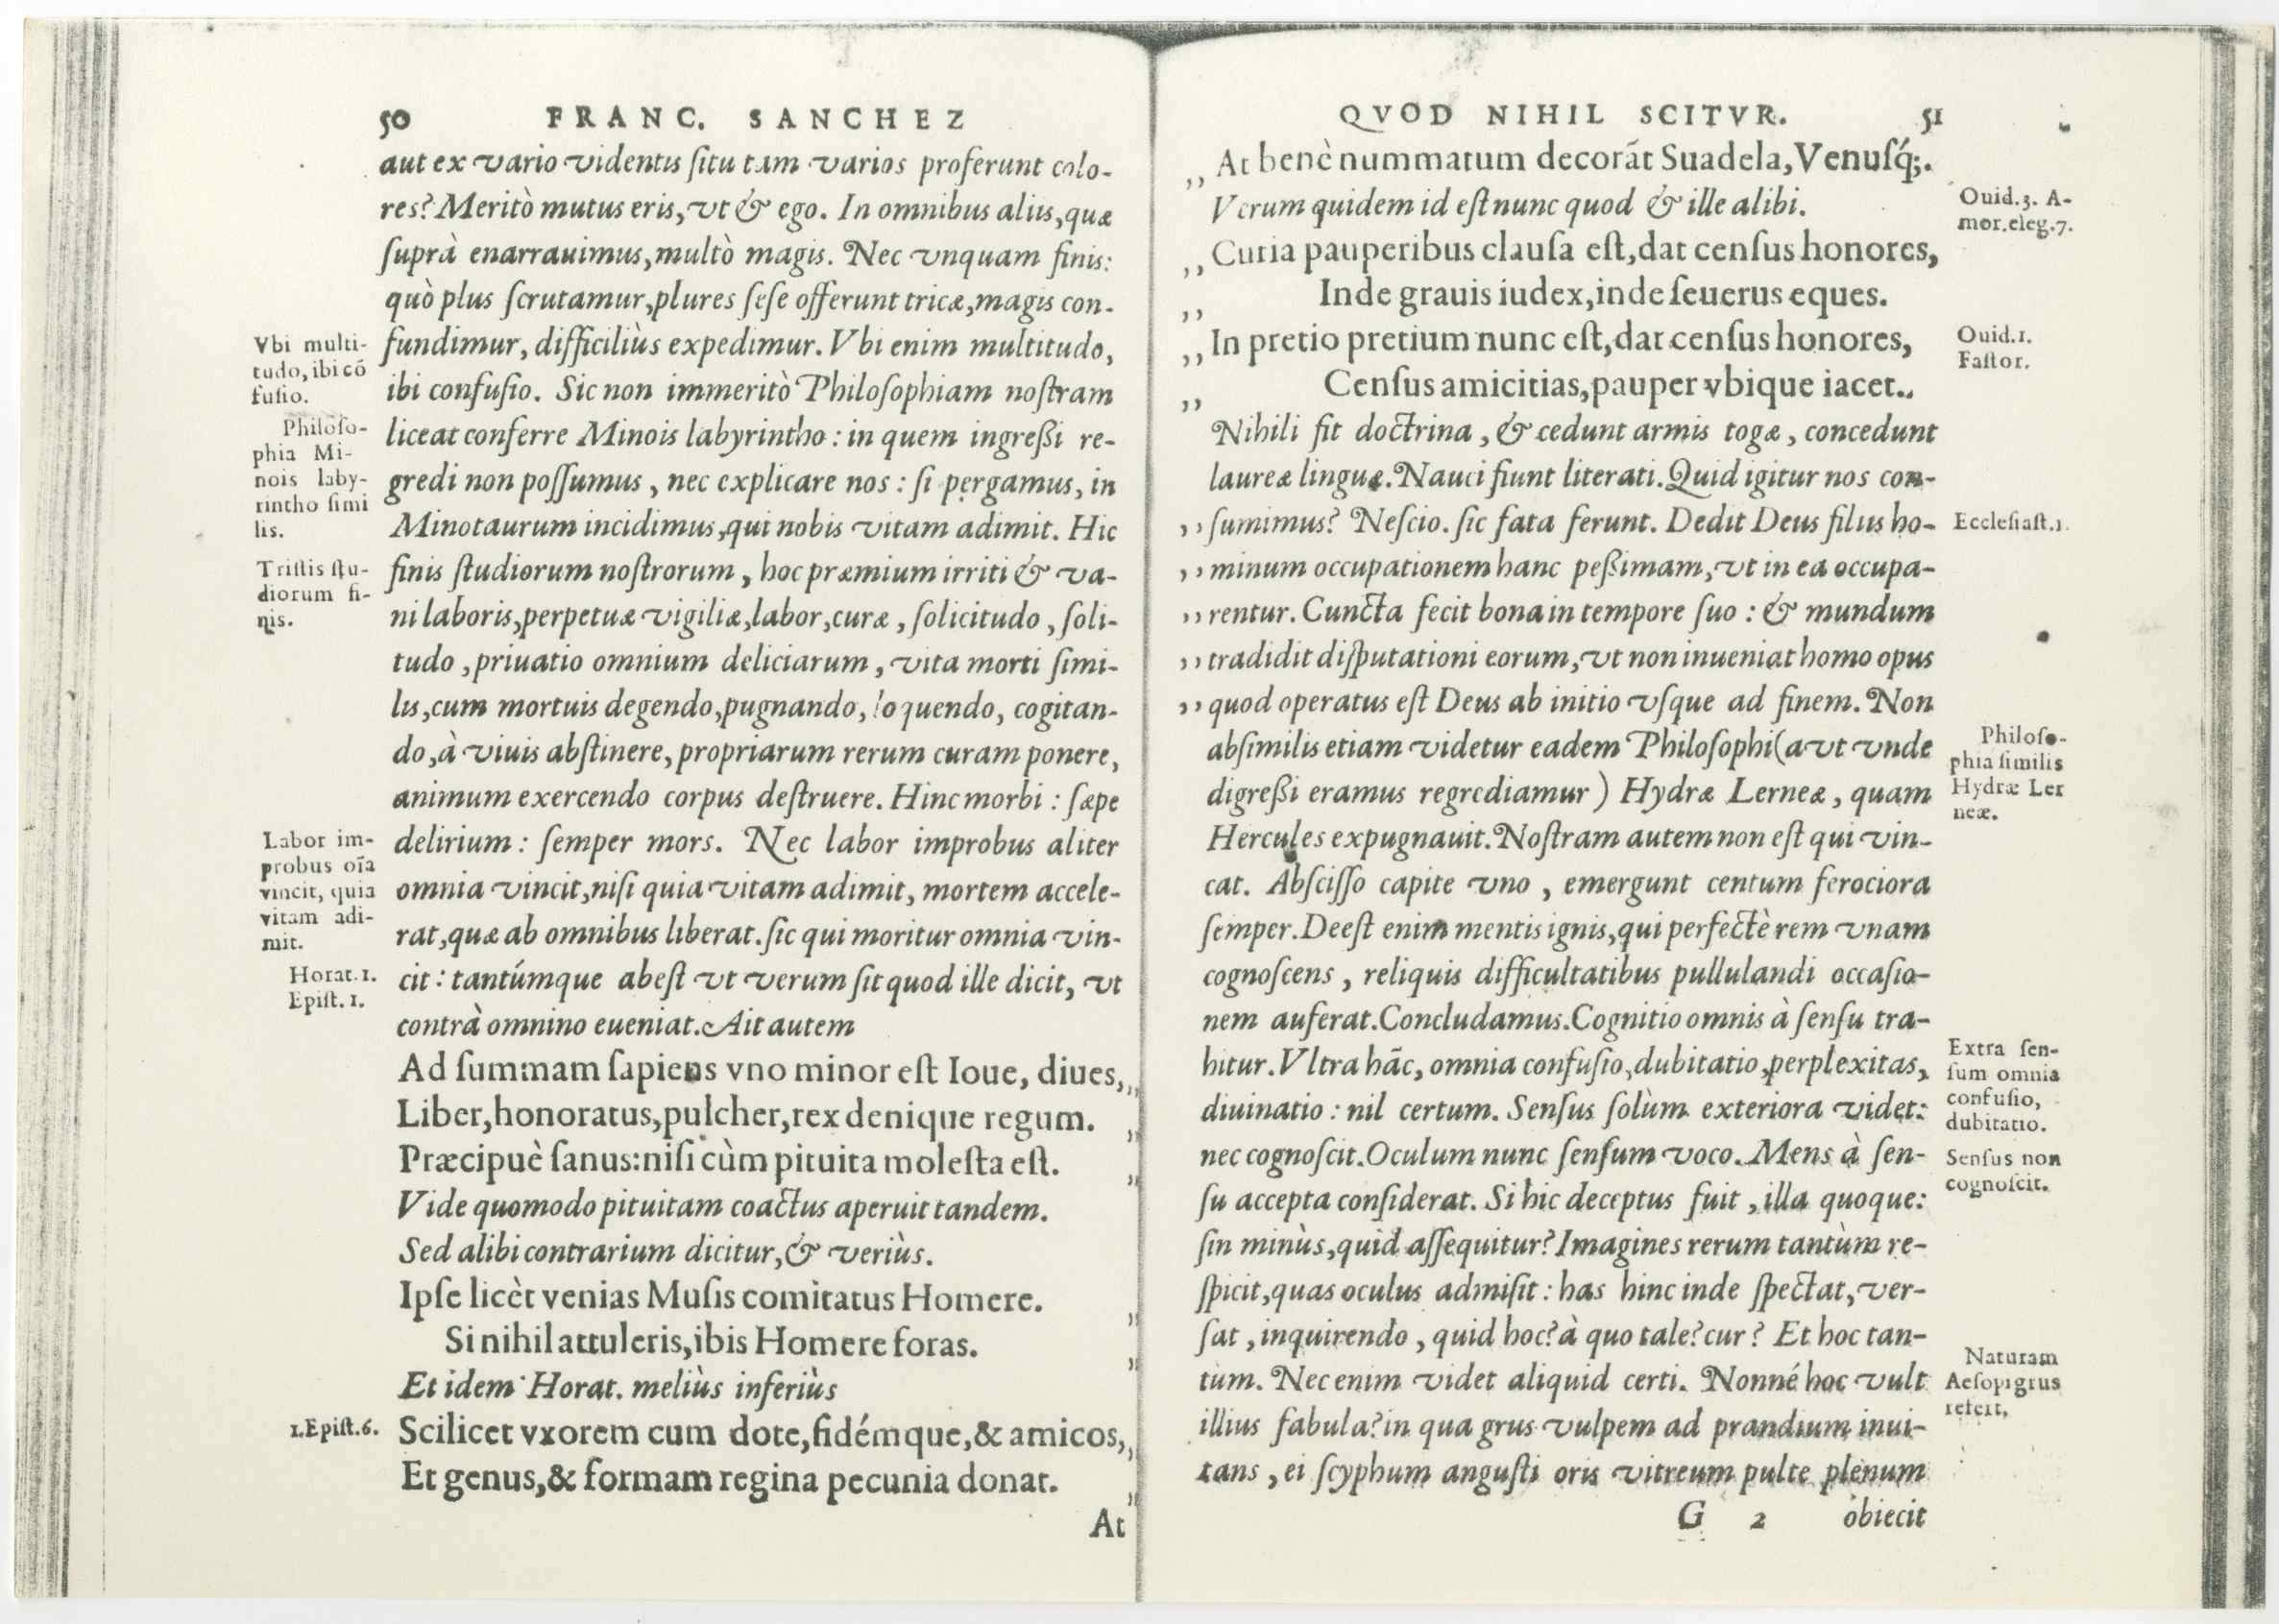 50 FRANC. SANCHEZ
aut ex vario videntis ſitu tam varios proferunt colo-
res? Meritò mutus eris, vt & ego. In omnibus aliis, quæ
ſuprà enarrauimus, multò magis. Nec vnquam finis:
quò plus ſcrutamur, plures ſeſe offerunt tricæ, magis con-
fundimur, difficiliùs expedimur. Vbi enim multitudo,
ibi confuſio. Sic non immeritò Philoſophiam noſtram
liceat conferre Minois labyrintho: in quem ingreßi re-
gredi non poſſumus, nec explicare nos: ſi pergamus, in
Minotaurum incidimus, qui nobis vitam adimit. Hic
finis ſtudiorum noſtrorum, hoc præmium irriti & va-
ni laboris, perpetuæ vigiliæ, labor, curæ, ſolicitudo, ſoli-
tudo, priuatio omnium deliciarum, vita morti ſimi-
lis, cum mortuis degendo, pugnando, loquendo, cogitan-
do, à viuis abſtinere, propriarum rerum curam ponere,
animum exercendo corpus deſtruere. Hinc morbi: ſæpe
delirium: ſemper mors. Nec labor improbus aliter
omnia vincit, niſi quia vitam adimit, mortem accele-
rat, quæ ab omnibus liberat. ſic qui moritur omnia vin-
cit: tantúmque abeſt vt verum ſit quod ille dicit, vt
contrà omnino eueniat. Ait autem
Ad ſummam ſapiens vno minor eſt Ioue, diues,,,
Liber, honoratus, pulcher, rex denique regum. ,,
Præcipuè ſanus: niſi cùm pituita moleſta eſt. ,,
Vide quomodo pituitam coactus aperuit tandem.
Sed alibi contrarium dicitur, & veriùs.
Ipſe licèt venias Muſis comitatus Homere. ,,
Si nihil attuleris, ibis Homere foras. ,,
Et idem Horat. meliùs inferiùs
Scilicet vxorem cum dote, fidémque, & amicos,,,
Et genus, & formam regina pecunia donat. ,,
At
Vbi multi-
tudo, ibi cō
fuſio.
Philoſo-
phia Mi-
nois laby-
rintho ſimi
lis.
Triſtis ſtu-
diorum fi-
nis.
Labor im-
probus oīa
vincit, quia
vitam adi-
mit.
Horat. 1.
Epiſt. 1.
1. Epiſt. 6.
QVOD NIHIL SCITVR. 51
,, At benè nummatum decorāt Suadela, Venuſq́;.
Verum quidem id eſt nunc quod & ille alibi.
,, Curia pauperibus clauſa eſt, dat cenſus honores,
,, Inde grauis iudex, inde ſeuerus eques.
,, In pretio pretium nunc eſt, dat cenſus honores,
,, Cenſus amicitias, pauper vbique iacet..
Nihili fit doctrina, & cedunt armis togæ, concedunt
laureæ linguæ. Nauci fiunt literati. Quid igitur nos con-
,, ſumimus? Neſcio. ſic fata ferunt. Dedit Deus filiis ho-
,, minum occupationem hanc peßimam, vt in ea occupa-
,, rentur. Cuncta fecit bona in tempore ſuo: & mundum
,, tradidit diſputationi eorum, vt non inueniat homo opus
,, quod operatus eſt Deus ab initio vſque ad finem. Non
abſimilis etiam videtur eadem Philoſophi(a vt vnde
digreßi eramus regrediamur) Hydræ Lerneæ, quam
Hercules expugnauit. Noſtram autem non eſt qui vin-
cat. Abſciſſo capite vno, emergunt centum ferociora
ſemper. Deeſt enim mentis ignis, qui perfectè rem vnam
cognoſcens, reliquis difficultatibus pullulandi occaſio-
nem auferat. Concludamus. Cognitio omnis à ſenſu tra-
hitur. Vltra hāc, omnia confuſio, dubitatio, perplexitas,
diuinatio: nil certum. Senſus ſolùm exteriora videt:
nec cognoſcit. Oculum nunc ſenſum voco. Mens à ſen-
ſu accepta conſiderat. Si hic deceptus fuit, illa quoque:
ſin minùs, quid aſſequitur? Imagines rerum tantùm re-
ſpicit, quas oculus admiſit: has hinc inde ſpectat, ver-
ſat, inquirendo, quid hoc? à quo tale? cur? Et hoc tan-
tùm. Nec enim videt aliquid certi. Nonné hoc vult
illius fabula? in qua grus vulpem ad prandium inui-
tans, ei ſcyphum anguſti oris vitreum pulte plenum
G 2 obiecit
Ouid. 3. A-
mor. eleg. 7.
Ouid. 1.
Faſtor.
Eccleſiaſt. 1.
Philoſo-
phia ſimilis
Hydræ Ler
neæ.
Extra ſen-
ſum omnia
confuſio,
dubitatio.
Senſus non
cognoſcit.
Naturam
Aeſopi grus
refert,